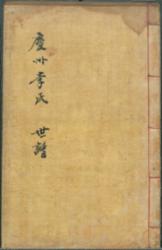 慶州李氏 世譜